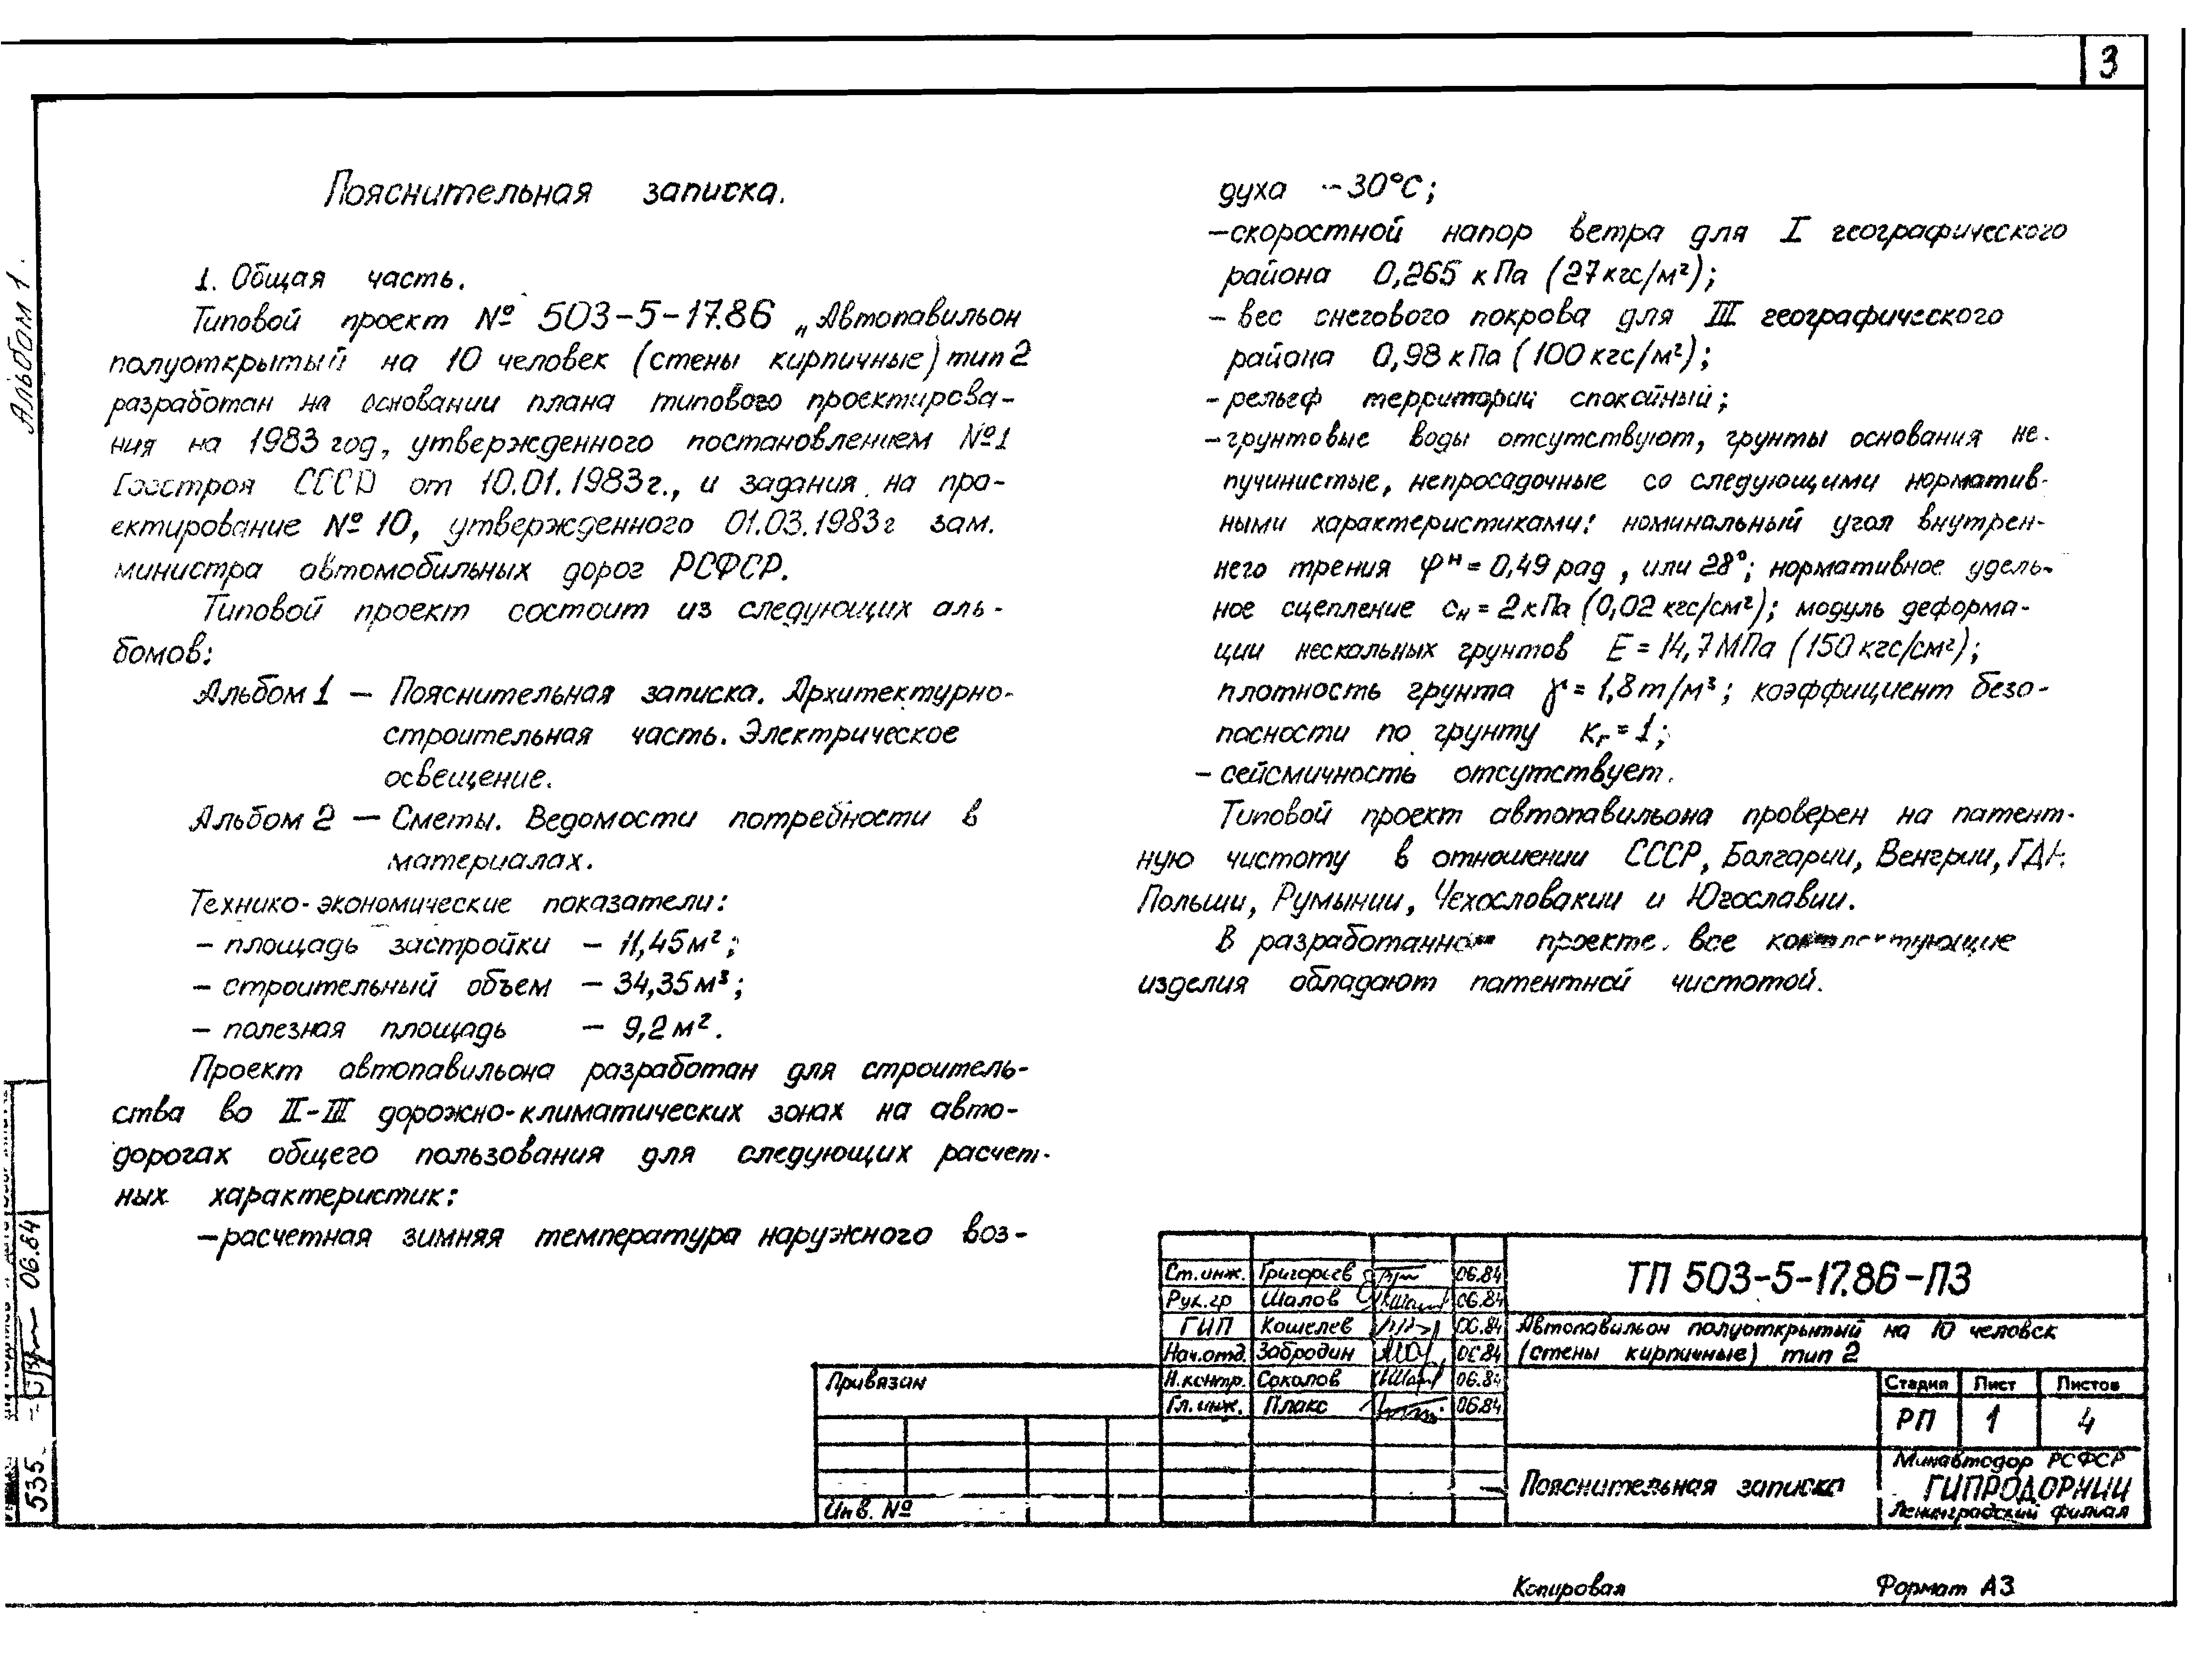 3
Альбом 1.
Пояснительная записка.
1. Общая часть.
Типовой проект № 503-5-17.86 „Автопавильон
полуоткрытый на 10 человек (стены кирпичные) тип 2
разработан на основании плана типового проектирова-
ния на 1983 год, утвержденного постановлением №1
Госстроя СССР от 10.01.1983г., и задания на про-
ектирование № 10, утвержденного 01.03.1983г зам.
министра автомобильных дорог РСФСР.
Типовой проект состоит из следующих аль-
бомов:
Альбом 1 — Пояснительная записка. Архитектурно-
строительная часть. Электрическое
освещение.
Альбом 2 — Сметы. Ведомости потребности в
материалах.
Технико-экономические показатели:
- площадь застройки - 11,45 м²;
- строительный объем - 34,35 м³;
- полезная площадь - 9,2 м².
Проект автопавильона разработан для строитель-
ства во II-III дорожно-климатических зонах на авто-
дорогах общего пользования для следующих расчет-
ных характеристик:
- расчетная зимняя температура наружного воз-
духа -30°С;
- скоростной напор ветра для I географического
района 0,265 кПа (27 кгс/м²);
- вес снегового покрова для III географического
района 0,98 кПа (100 кгс/м²);
- рельеф территории спокойный;
- грунтовые воды отсутствуют, грунты основания не-
пучинистые, непросадочные со следующими норматив-
ными характеристиками: номинальный угол внутрен-
него трения φᴴ = 0,49 рад, или 28°; нормативное удель-
ное сцепление сₙ = 2 кПа (0,02 кгс/см²); модуль деформа-
ции нескальных грунтов E = 14,7 МПа (150 кгс/см²);
плотность грунта γ = 1,8 т/м³; коэффициент безо-
пасности по грунту кᵣ = 1;
- сейсмичность отсутствует.
Типовой проект автопавильона проверен на патент-
ную чистоту в отношении СССР, Болгарии, Венгрии, ГДР,
Польши, Румынии, Чехословакии и Югославии.
В разработанном проекте все комплектующие
изделия обладают патентной чистотой.
06.84
535
Привязан
Инв. №
Ст.инж. Григорьев 06.84
Рук.гр Шалов 06.84
ГИП Кошелев 06.84
Нач.отд. Забродин 06.84
Н.контр. Соколов 06.84
Гл.инж. Плакс 06.84
ТП 503-5-17.86-ПЗ
Автопавильон полуоткрытый на 10 человек
(стены кирпичные) тип 2
Стадия Лист Листов
РП 1 4
Пояснительная записка
Минавтодор РСФСР
ГИПРОДОРНИИ
Ленинградский филиал
Копировал
Формат А3